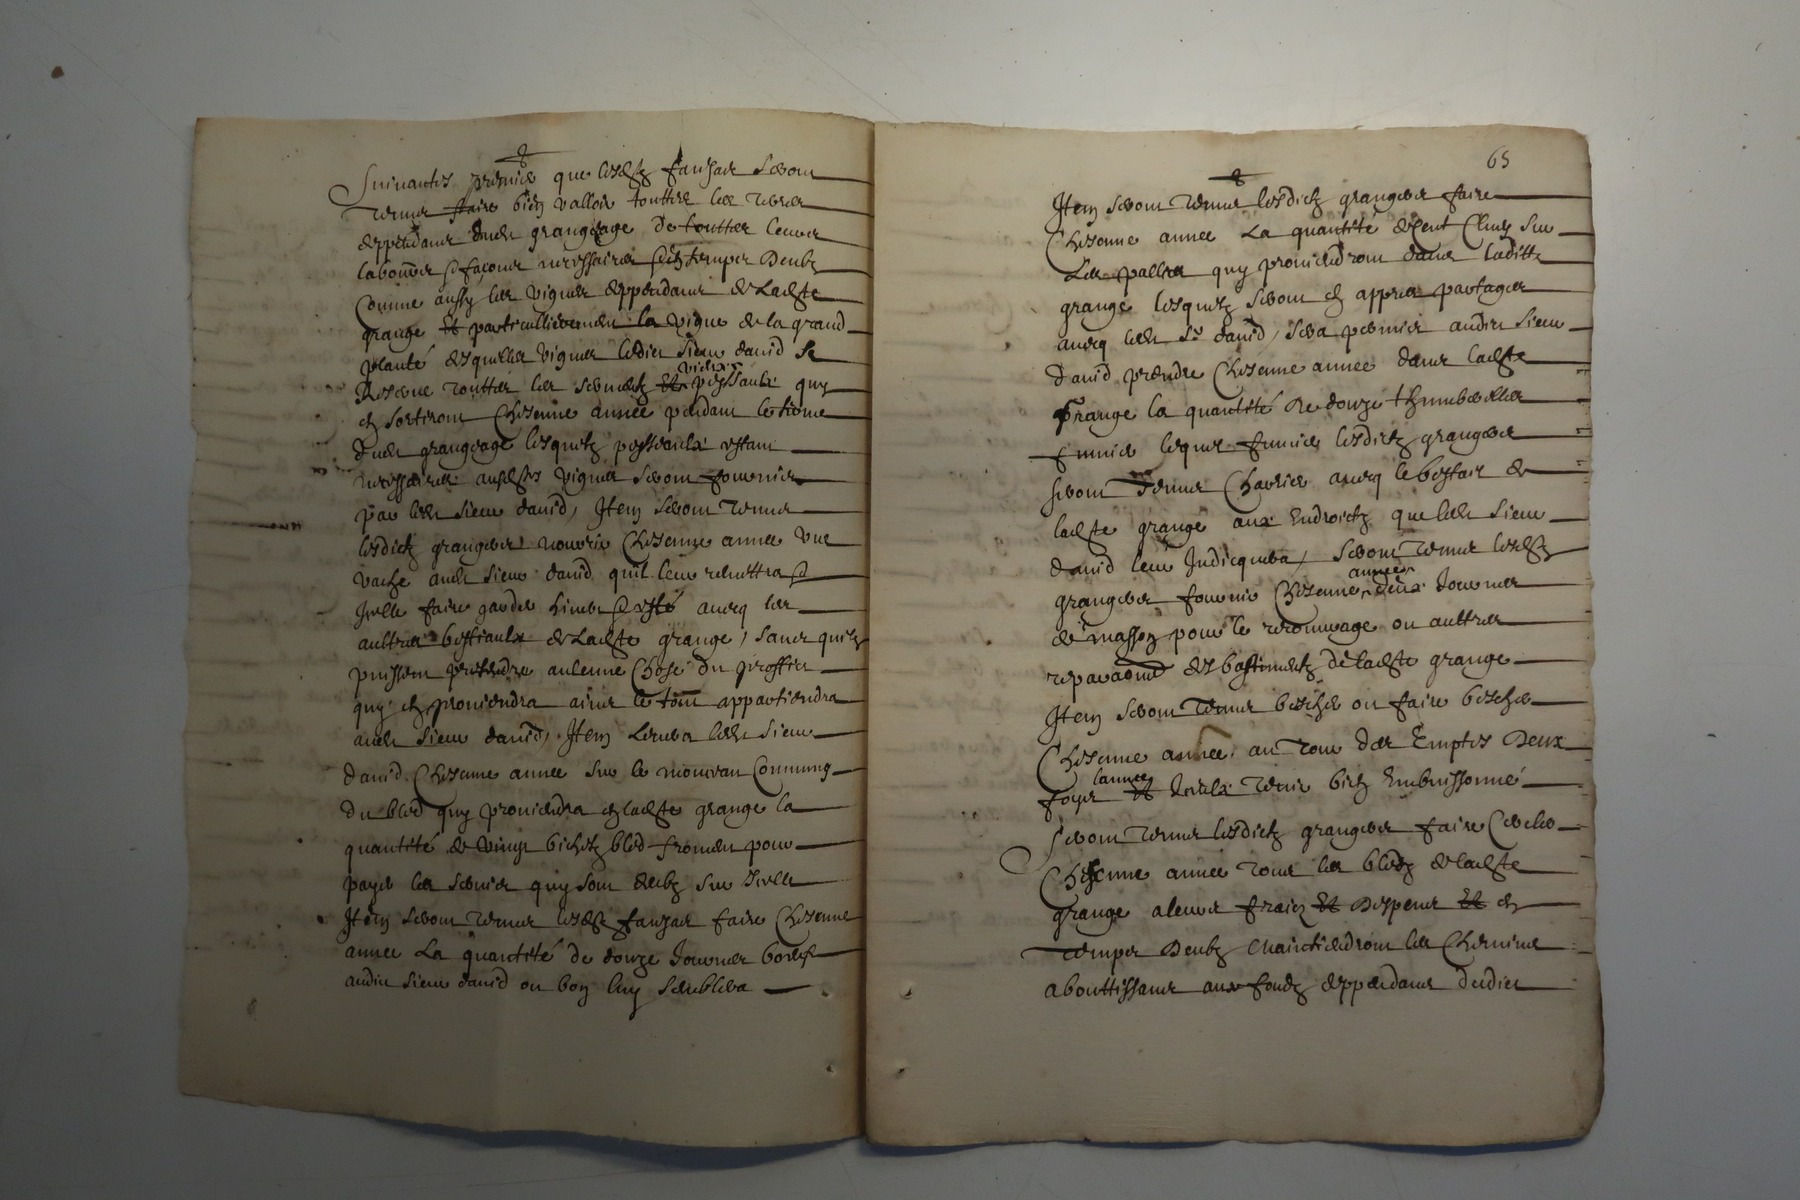 Suivantes premier que lesdictz fansard seront
tenus faire bien valloir touttes les terres
deppendans dudit grangeage de touttes leurs
labours & façons necessaires & en temps deubz
Comme aussy les vignes deppendans de ladicte
grange et particullierement la vigne de la grand
planté desquelles vignes ledict sieur david se
Reserve touttes les serments
vieux
et pesseaulx quy
en sortiront Chescune année pendant le terme
dudit grangeage lesquelz pesseaulx estant
necessaires ausdites vignes seront fournies
par ledit sieur david, Item seront tenus
lesdictz grangers nourrir Chescune annee une
vache audit sieur david quil leur remettra &
Icelle faire garder hiver & esté avecq les
aultres bestiaulx de ladicte grange, sans quilz
puissent pretendre aulcune Chose du proffict
quy en proviendra ains le tout appartiendra
audit sieur david, Item levera ledit sieur
david Chescune annee sur le monceau Commung
du bled quy proviendra en ladicte grange la
quantité de vingt bichetz bled froment pour
payer les servis quy sont deubz sur Icelle
Item seront tenus lesdictz fansard faire Chescune
annee La quantité de douze Journees
audict sieur david ou bon luy semblera
65
Item seront tenus lesdictz grangers faire
Chescune annee La quantité de cent Cluis sur
Les pailles quy proviendront dans laditte
grange lesquelz seront en appres partages
avecq ledit Sr david, sera permis audict sieur
david prendre Chescune annee dans ladicte
grange la quantité de douze thumberelles
fumier lequel fumier lesdictz grangers
seront tenus Charrier avecq le bestail de
ladicte grange aux Endroictz que ledit sieur
david leur Indicquera, seront tenus lesdictz
grangers fournir Chescune
annee
deux Journees
de masson pour le recouvrage ou aultres
reparaons des bastimentz de ladicte grange
Item seront tenus bescher ou faire bescher
Chescune annee, au tour des Emptes deux
foys
lannee
et Iceulx tenir bien Embuissonné
seront tenus lesdictz grangers faire Cercler
Chescune annee tous les bledz de ladicte
grange a leurs fraiz et despens et en
temps deubz maintiendront les Chemins
abouttissans aux fondz deppendans dudict